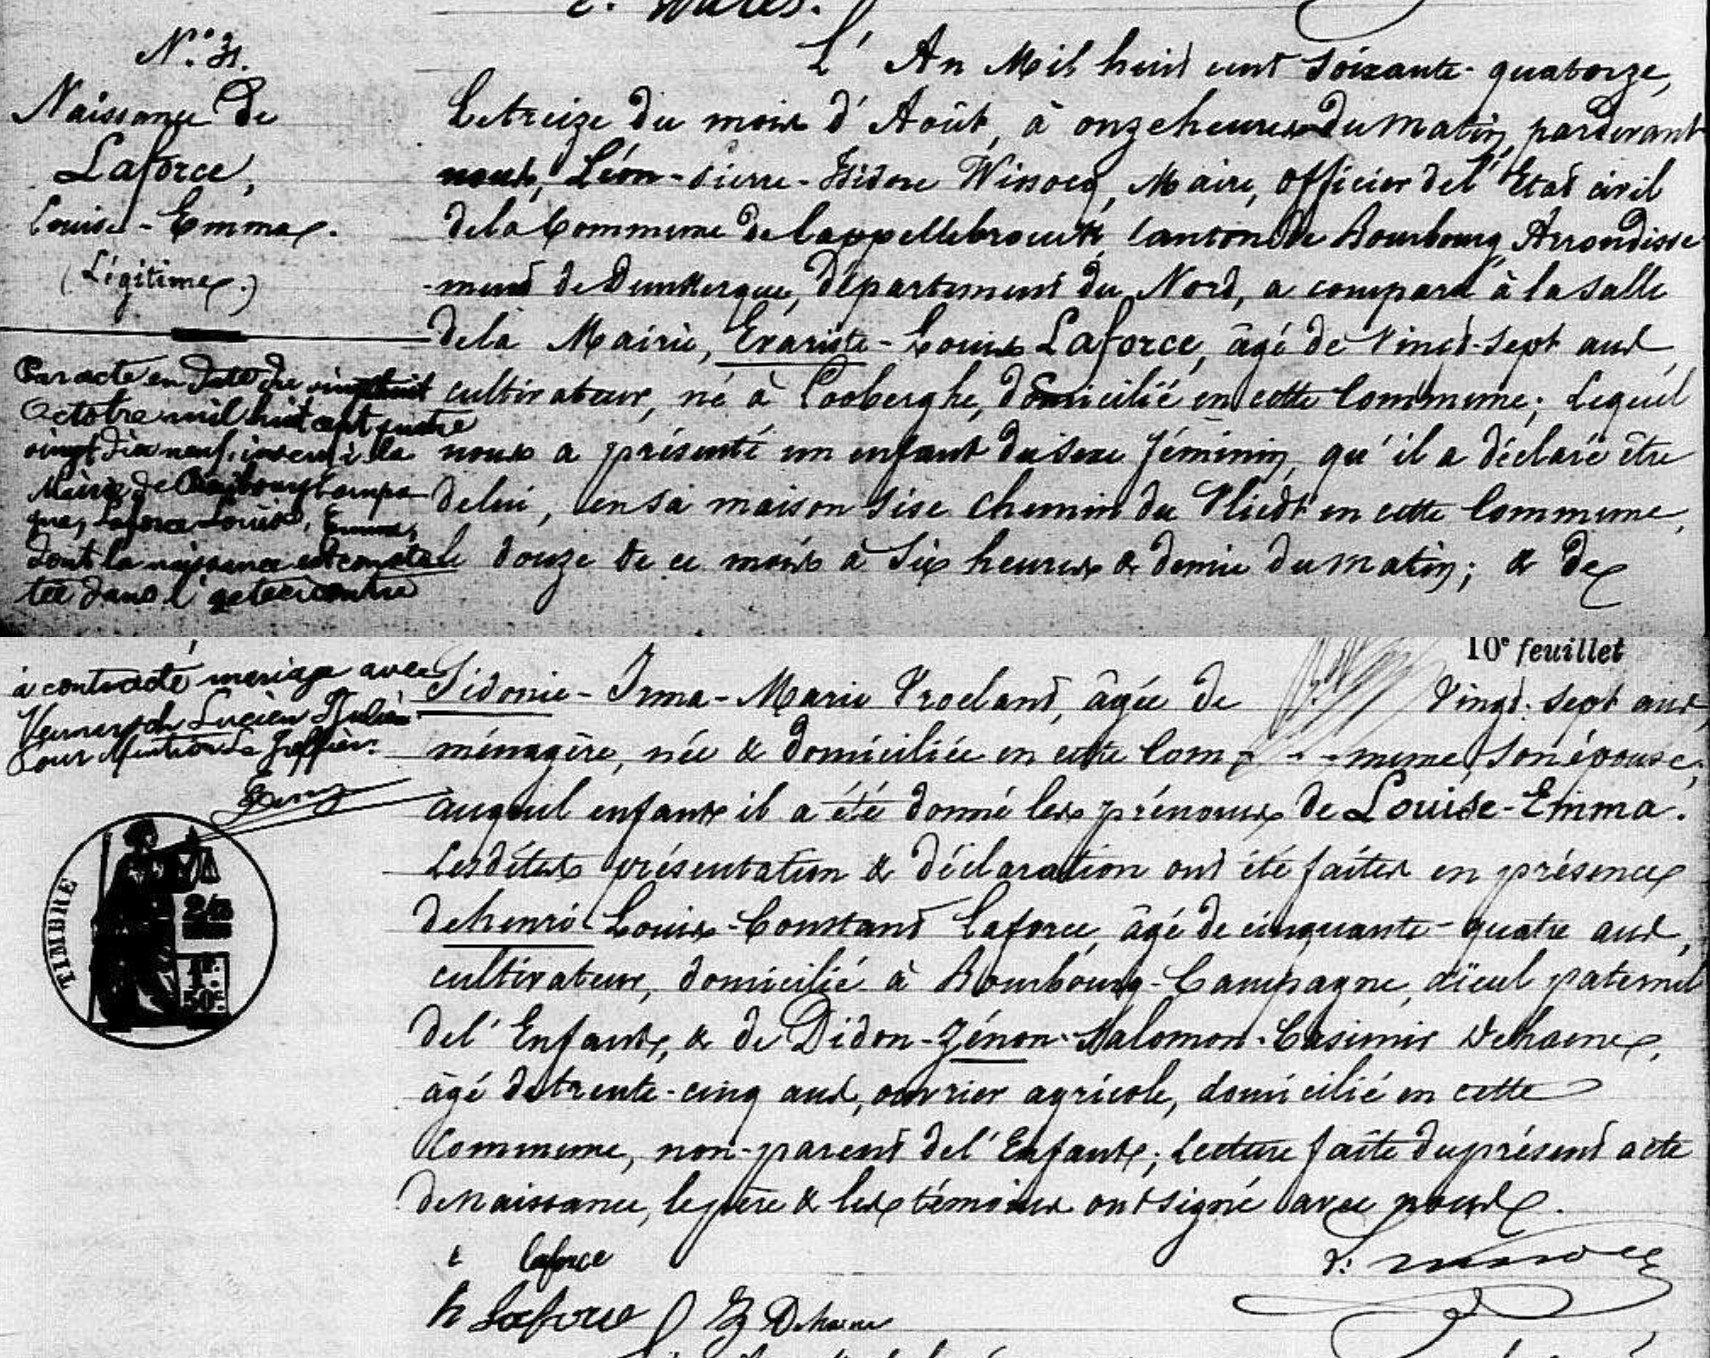 N.° 31.
Naissance de
Laforce,
Louise-Emma.
(Légitime.)
Par acte en date du vingt huit
Octobre mil huit cent quatre
vingt dix neuf, inscrit à la
Mairie de Bourbourg Campa
gne, Laforce Louise, Emma,
dont la naissance est consta
tée dans l'acte ci contre
L'An Mil huit cent soixante-quatorze,
Le treize du mois d'Août, à onze heures du matin, pardevant
nous, Léon-Pierre-Isidore Wissocq, Maire, officier de l'Etat civil
de la Commune de Cappellebrouck, Canton de Bourbourg, Arrondisse
-ment de Dunkerque, département du Nord, a comparu à la salle
de la Mairie, Evariste-Louis Laforce, âgé de vingt-sept ans,
cultivateur, né à Looberghe, domicilié en cette Commune; Lequel
nous a présenté un enfant du sexe féminin, qu'il a déclaré être
de lui, en sa maison sise chemin du Vliedt en cette Commune,
le douze de ce mois à six heures & demie du matin; & de
10e feuillet
à contracté mariage avec
Lucien Julien
Pour Mention Le Greffier:
Sidonie-Irma-Marie Vroeland, âgée de vingt-sept ans,
ménagère, née & domiciliée en cette Com- - -mune, son épouse,
auquel enfant il a été donné les prénoms de Louise-Emma.
Lesdites présentation & déclaration ont été faites en présence
de henri Louis-Constant Laforce, âgé de cinquante-quatre ans,
cultivateur, domicilié à Bourbourg-Campagne, aïeul paternel
de l'Enfant, & de Didon-Zénon-Salomon-Casimir Dehaene,
âgé de trente-cinq ans, ouvrier agricole, domicilié en cette
Commune, non-parent de l'Enfant; Lecture faite du présent acte
de naissance, le père & les témoins ont signé avec nous.
TIMBRE
2/10
1F.
50c.
E Laforce
L. Wissocq
h Laforce Z Dehaene